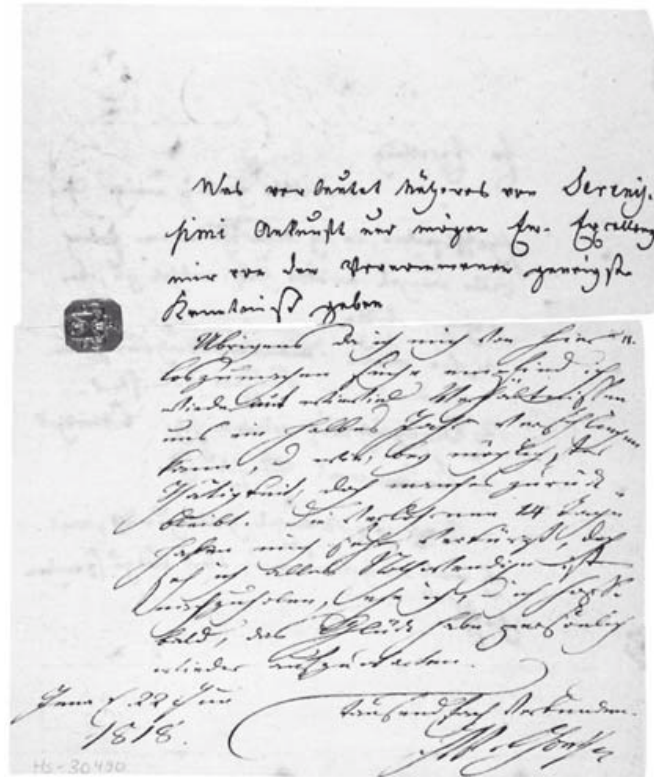 Was verlautet Näheres von Sereniß-
simi Ankunft und mögen Ew. Excellenz
mir von dem Vernommenen geneigte
Kenntniß geben
Übrigens da ich mich von hier
loszumachen suche empfind ich
wieder wieviel Verhältnisse
uns ein halbes Jahr verschlingen
kann, u wie, bey möglichster
Thätigkeit, doch manches zurück
bleibt. Die verlohrnen 14 Tage
haben mich sehr verkürzt, doch
ich alles Nothwendige
nachzuholen, ehe ich, u ich hoffe
bald, das Glück habe persönlich
wieder aufzuwarten.
Jena d. 22 Jun
1818.
tausendfach verbunden.
JWvGoethe
Hs-30490